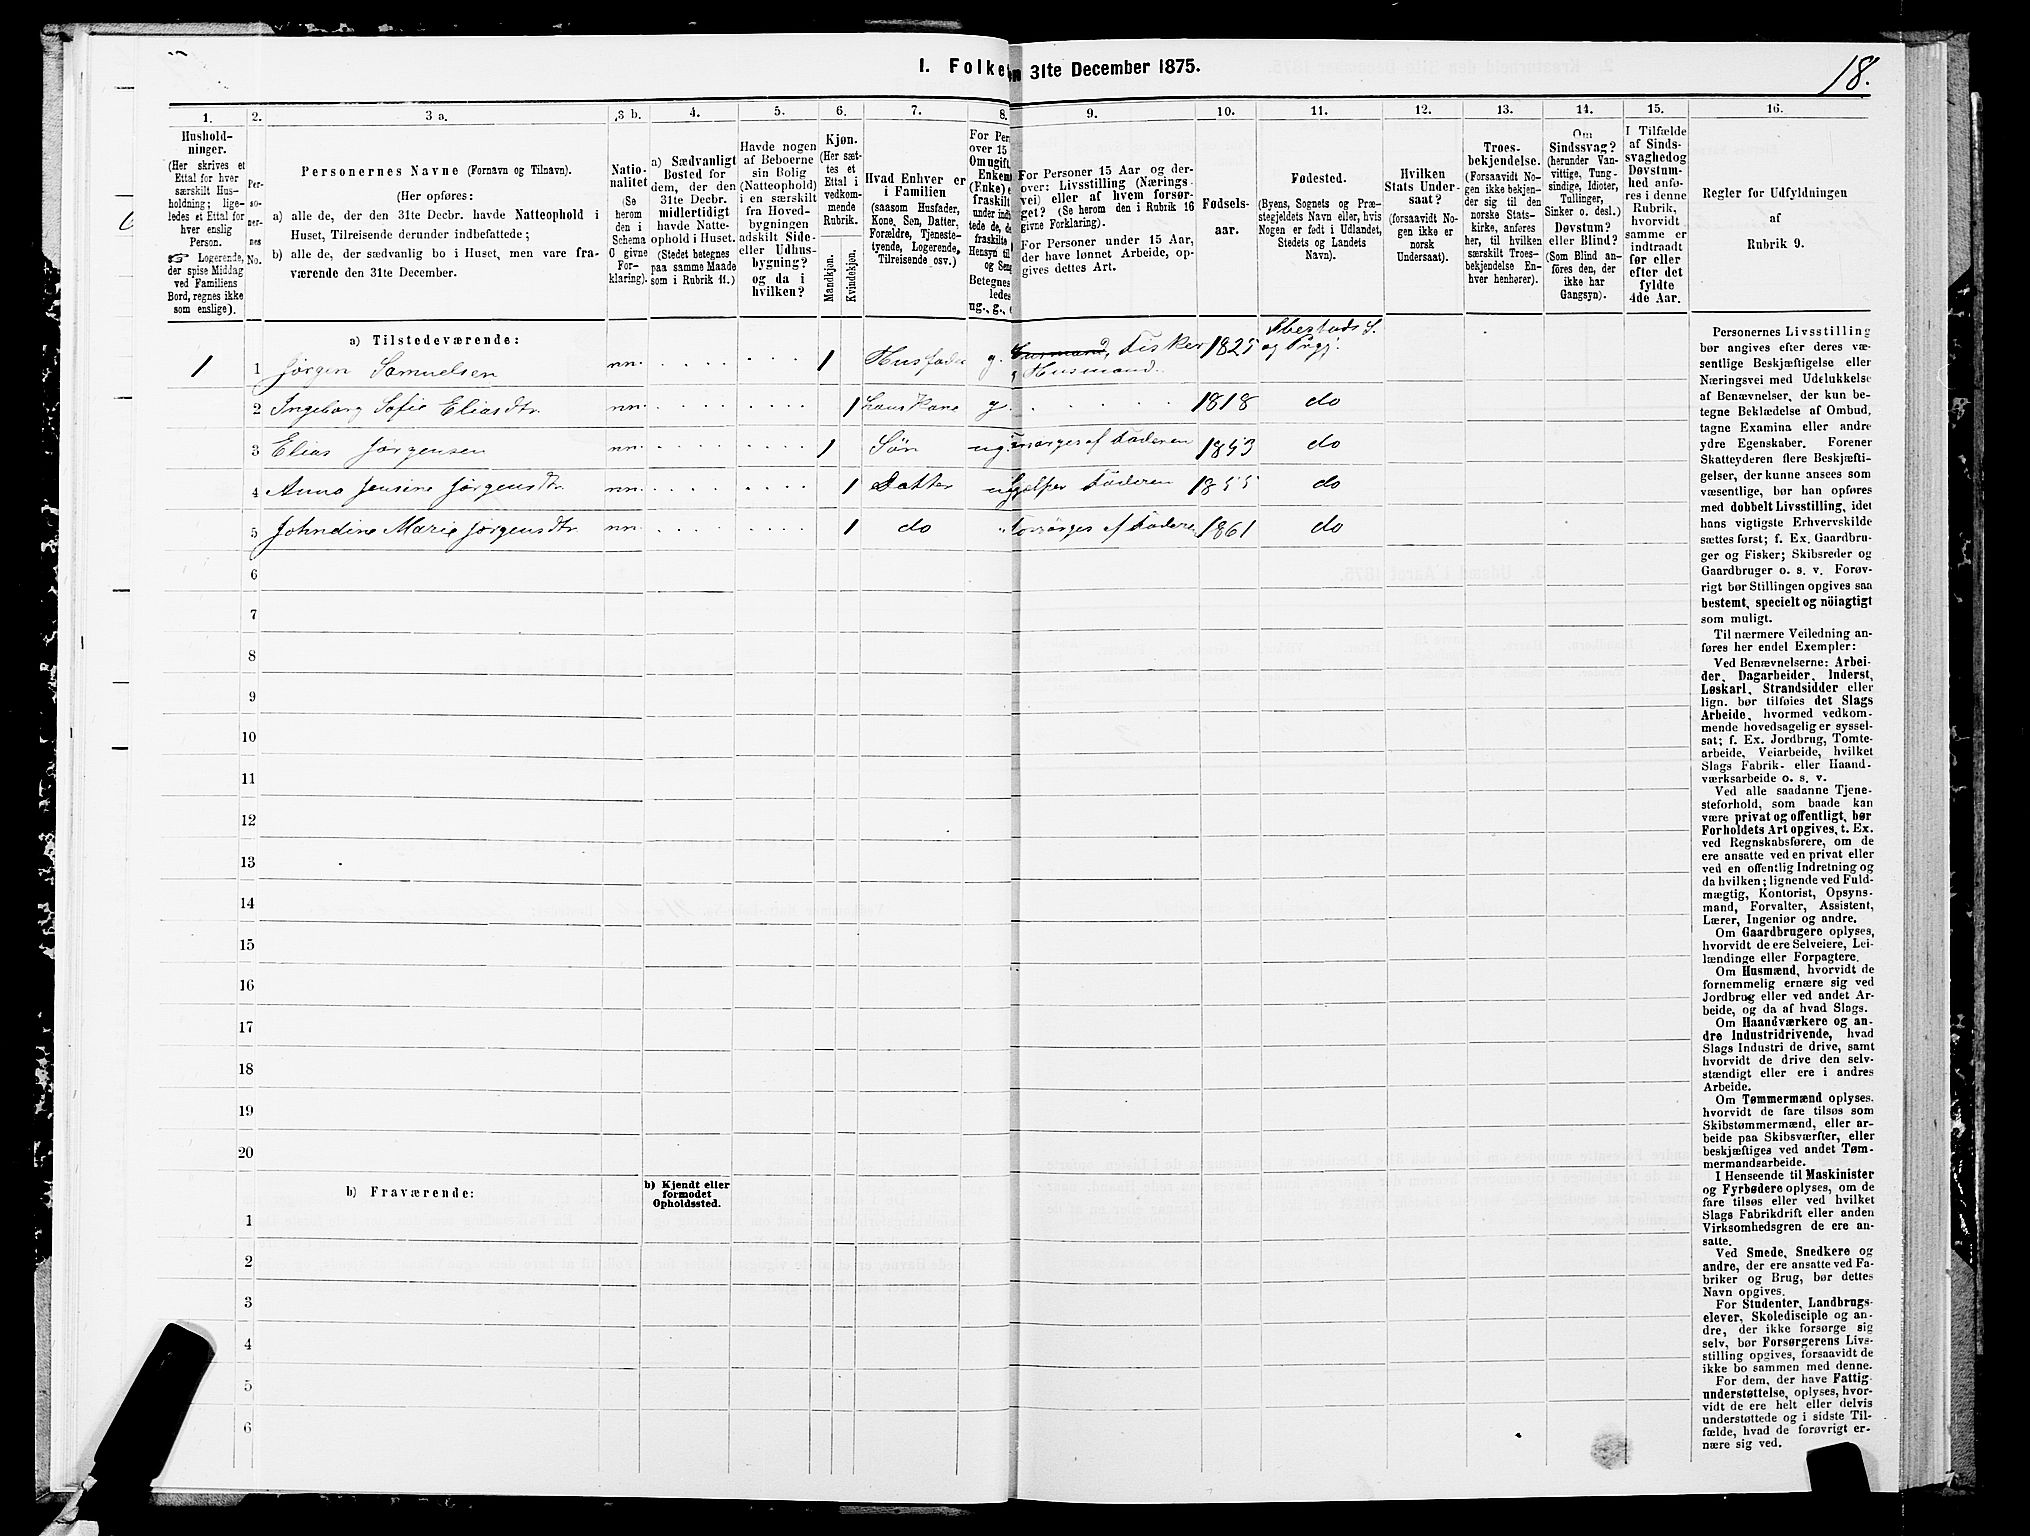 I. Folke
31te December 1875.
18.
1.
2.
3 a.
3 b.
4.
5.
6.
7.
8.
9.
10.
11.
12.
13.
14.
15.
16.
Hushold-
ninger.
(Her skrives et
Ettal for hver
særskilt Hus-
holdning; lige-
ledes et Ettal for
hver enslig
Person.
☞ Logerende,
der spise Middag
ved Familiens
Bord, regnes ikke
som enslige).
Per-
so-
ner-
nes
No.
Personernes Navne (Fornavn og Tilnavn).
(Her opføres:
a) alle de, der den 31te Decbr. havde Natteophold i
Huset, Tilreisende derunder indbefattede;
b) alle de, der sædvanlig bo i Huset, men vare fra-
værende den 31te December.
Natio-
nalitet
(Se
herom
den i
Schema
C givne
For-
klaring).
a) Sædvanligt
Bosted for
dem, der den
31te Decbr.
midlertidigt
havde Natte-
ophold i Huset.
(Stedet betegnes
paa samme Maade
som i Rubrik 11.)
Havde nogen
af Beboerne
sin Bolig
(Natteophold)
i en særskilt
fra Hoved-
bygningen
adskilt Side-
eller Udhus-
bygning?
og da i
hvilken?
Kjøn.
(Her sæt-
tes et
Ettal i
vedkom-
mende
Rubrik.
Mandkjøn.
Kvindekjøn.
Hvad Enhver er
i Familien
(saasom Husfader,
Kone, Søn, Datter,
Forældre, Tjeneste-
tyende, Logerende,
Tilreisende osv.)
For Per
over 15
Om ugift,
Enkem
(Enke) e
fraskilt
under ind
tede de, d
fraskilte
Hensyn til
og Sen
Betegnes
ledes
ug., g., e
For Personer 15 Aar og der-
over: Livsstilling (Nærings-
vei) eller af hvem forsør-
get? (Se herom den i Rubrik 16
givne Forklaring).
For Personer under 15 Aar,
der have lønnet Arbeide, op-
gives dettes Art.
Fødsels-
aar.
Fødested.
(Byens, Sognets og Præ-
stegjeldets Navn eller, hvis
Nogen er født i Udlandet,
Stedets og Landets
Navn).
Hvilken
Stats Under-
saat?
(forsaavidt No-
gen ikke er
norsk
Undersaat).
Troes-
bekjendelse.
(Forsaavidt No-
gen ikke bekjen-
der sig til den
norske Stats-
kirke, anføres
her, til hvilken
særskilt Troes-
bekjendelse En-
hver henhører).
Om
Sindssvag?
(herunder Van-
vittige, Tung-
sindige, Idioter,
Tullinger,
Sinker o. desl.)
Døvstum?
eller Blind?
(Som Blind an-
føres den, der
ikke har
Gangsyn).
I Tilfælde
af Sinds-
svaghed og
Døvstum-
hed anfø-
res i denne
Rubrik,
hvorvidt
samme er
indtraadt
før eller
efter det
fyldte
4de Aar.
Regler for Udfyldningen
af
Rubrik 9.
a) Tilstedeværende:
1 1 Jørgen Samuelsen nn. 1 Husfader g. Husmand, Fisker 1825 Ibestads S.
Husmand. og Prgj.
2 Ingeborg Sofie Eliasdtr. nn. 1 Huskone g. 1818 do
3 Elias Jørgensen nn. 1 Søn ug. Forsørges af Faderen 1853 do
4 Anna Jensine Jørgensdtr. nn. 1 Datter ug. Hjelper Faderen 1855 do
5 Johndine Marie Jørgensdtr nn. 1 do " Forsørges af Faderen 1861 do
6
7
8
9
10
11
12
13
14
15
16
17
18
19
20
b) Fraværende:
b) Kjendt eller
formodet
Opholdssted.
1
2
3
4
5
6
Personernes Livsstilling
bør angives efter deres væ-
sentlige Beskjæftigelse eller
Næringsvei med Udelukkelse
af Benævnelser, der kun be-
tegne Beklædelse af Ombud,
tagne Examina eller andre
ydre Egenskaber. Forener
Skatteyderen flere Beskjæfti-
gelser, der kunne ansees som
væsentlige, bør han opføres
med dobbelt Livsstilling, idet
hans vigtigste Erhvervskilde
sættes først; f. Ex. Gaardbru-
ger og Fisker; Skibsreder og
Gaardbruger o. s. v. Forøv-
rigt bør Stillingen opgives saa
bestemt, specielt og nöiagtigt
som muligt.
Til nærmere Veiledning an-
føres her endel Exempler:
Ved Benævnelserne: Arbei-
der, Dagarbeider, Inderst,
Løskarl, Strandsidder eller
lign. bør tilføies det Slags
Arbeide, hvormed vedkom-
mende hovedsagelig er syssel-
sat; f. Ex. Jordbrug, Tomte-
arbeide, Veiarbeide, hvilket
Slags Fabrik- eller Haand-
værksarbeide o. s. v.
Ved alle saadanne Tjene-
steforhold, som baade kan
være privat og offentligt, bør
Forholdets Art opgives, t. Ex.
ved Regnskabsførere, om de
ere ansatte ved en privat eller
ved en offentlig Indretning og
da hvilken; lignende ved Fuld-
mægtig, Kontorist, Opsyns-
mand, Forvalter, Assistent,
Lærer, Ingeniør og andre.
Om Gaardbrugere oplyses,
hvorvidt de ere Selveiere, Lei-
lændinge eller Forpagtere.
Om Husmænd, hvorvidt de
fornemmelig ernære sig ved
Jordbrug eller ved andet Ar-
beide, og da af hvad Slags.
Om Haandværkere og an-
dre Industridrivende, hvad
Slags Industri de drive, samt
hvorvidt de drive den selv-
stændigt eller ere i andres
Arbeide.
Om Tømmermænd oplyses,
hvorvidt de fare tilsøs som
Skibstømmermænd, eller ar-
beide paa Skibsværfter, eller
beskjæftiges ved andet Tøm-
mermandsarbeide.
I Henseende til Maskinister
og Fyrbødere oplyses, om de
fare tilsøs eller ved hvilket
Slags Fabrikdrift eller anden
Virksomhedsgren de ere an-
satte.
Ved Smede, Snedkere og
andre, der ere ansatte ved Fa-
briker og Brug, bør dettes
Navn opgives.
For Studenter, Landbrugs-
elever, Skoledisciple og an-
dre, der ikke forsørge sig
selv, bør Forsørgerens Livs-
stilling opgives, forsaavidt de
ikke bo sammen med denne.
For dem, der have Fattig-
understøttelse, oplyses, hvor-
vidt de ere helt eller delvis
understøttede og i sidste Til-
fælde, hvad de forøvrigt er-
nære sig ved.